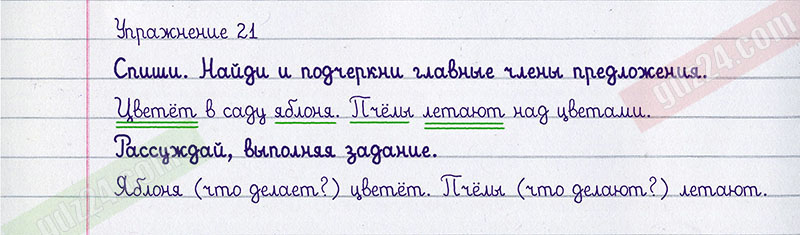 Упражнение 21
Спиши. Найди и подчеркни главные члены предложения.
Цветёт в саду яблоня. Пчёлы летают над цветами.
Рассуждай, выполняя задание.
Яблоня (что делает?) цветёт. Пчёлы (что делают?) летают.
gdz24.com
gdz24.com